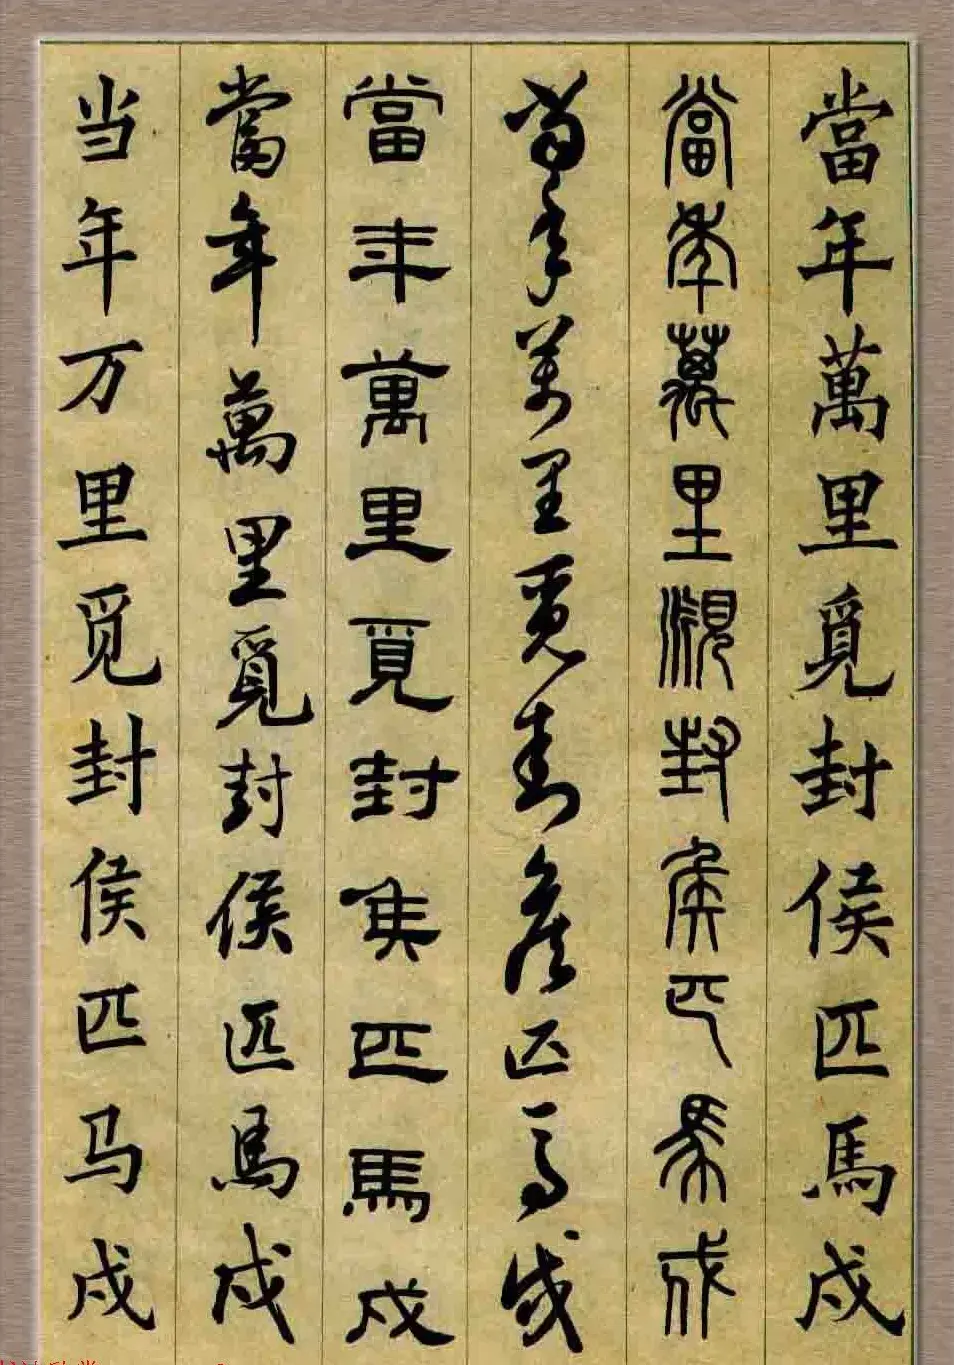 當年萬里覓封侯匹馬戍
當年萬里覓封侯匹馬戍
當年萬里覓封侯匹馬戍
當年萬里覓封侯匹馬戍
當年萬里覓封侯匹馬戍
当年万里觅封侯匹马戍